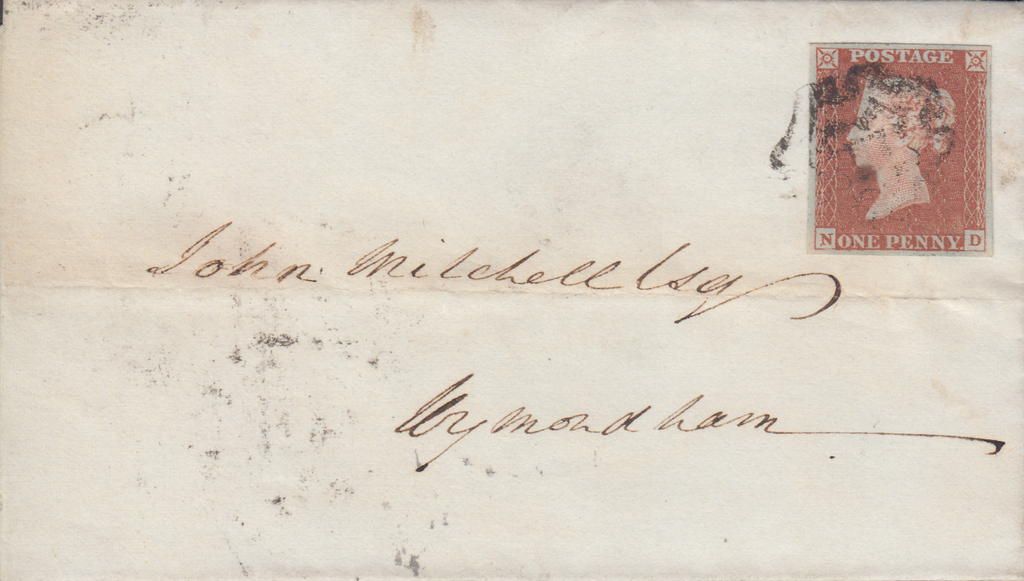 POSTAGE
N ONE PENNY D
John Mitchell Esq
Wymondham